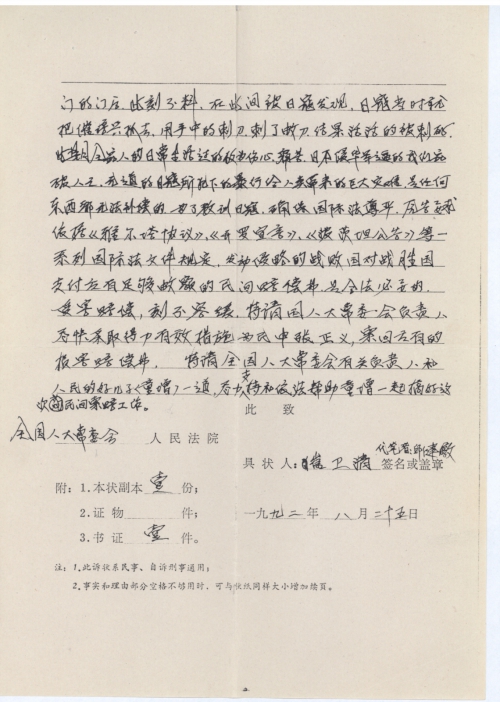 门的门后，此刻不料，在此间被日寇发现，日寇当时就
把崔振兴抓去，用手中的刺刀，刺了数刀，结果活活的被刺死，
全家人的日常生活过的极为伤心，
破人亡，无道的日寇所犯下的暴行给人类带来的巨大灾难，是任何
东西都无法补偿的，为了教训日寇，确保国际法尊严，原告要求
依据《雅尔塔协议》、《开罗宣言》、《波茨坦公告》等一
系列国际法文件规定，发动侵略的战败国对战胜国
支付应有足够数额的民间赔偿费，是合法必要的
受害赔偿，刻不容缓，特请国人大常委会负责人
尽快采取得力有效措施为民申张正义，索回应有的
损害赔偿费。特请全国人大常委会有关负责人和
人民的好儿子《童增》一道，支持和依法帮助童增一起搞好这
次民间索赔工作。
此 致
全国人大常委会 人民法院
代笔者：邱建敏
具状人：崔卫满 签名或盖章
附：1.本状副本 壹 份；
2.证物 件；
一九九二年 八 月 二十五日
3.书证 壹 件。
注：1.此诉状系民事、自诉刑事通用；
2.事实和理由部分空格不够用时，可与状纸同样大小增加续页。